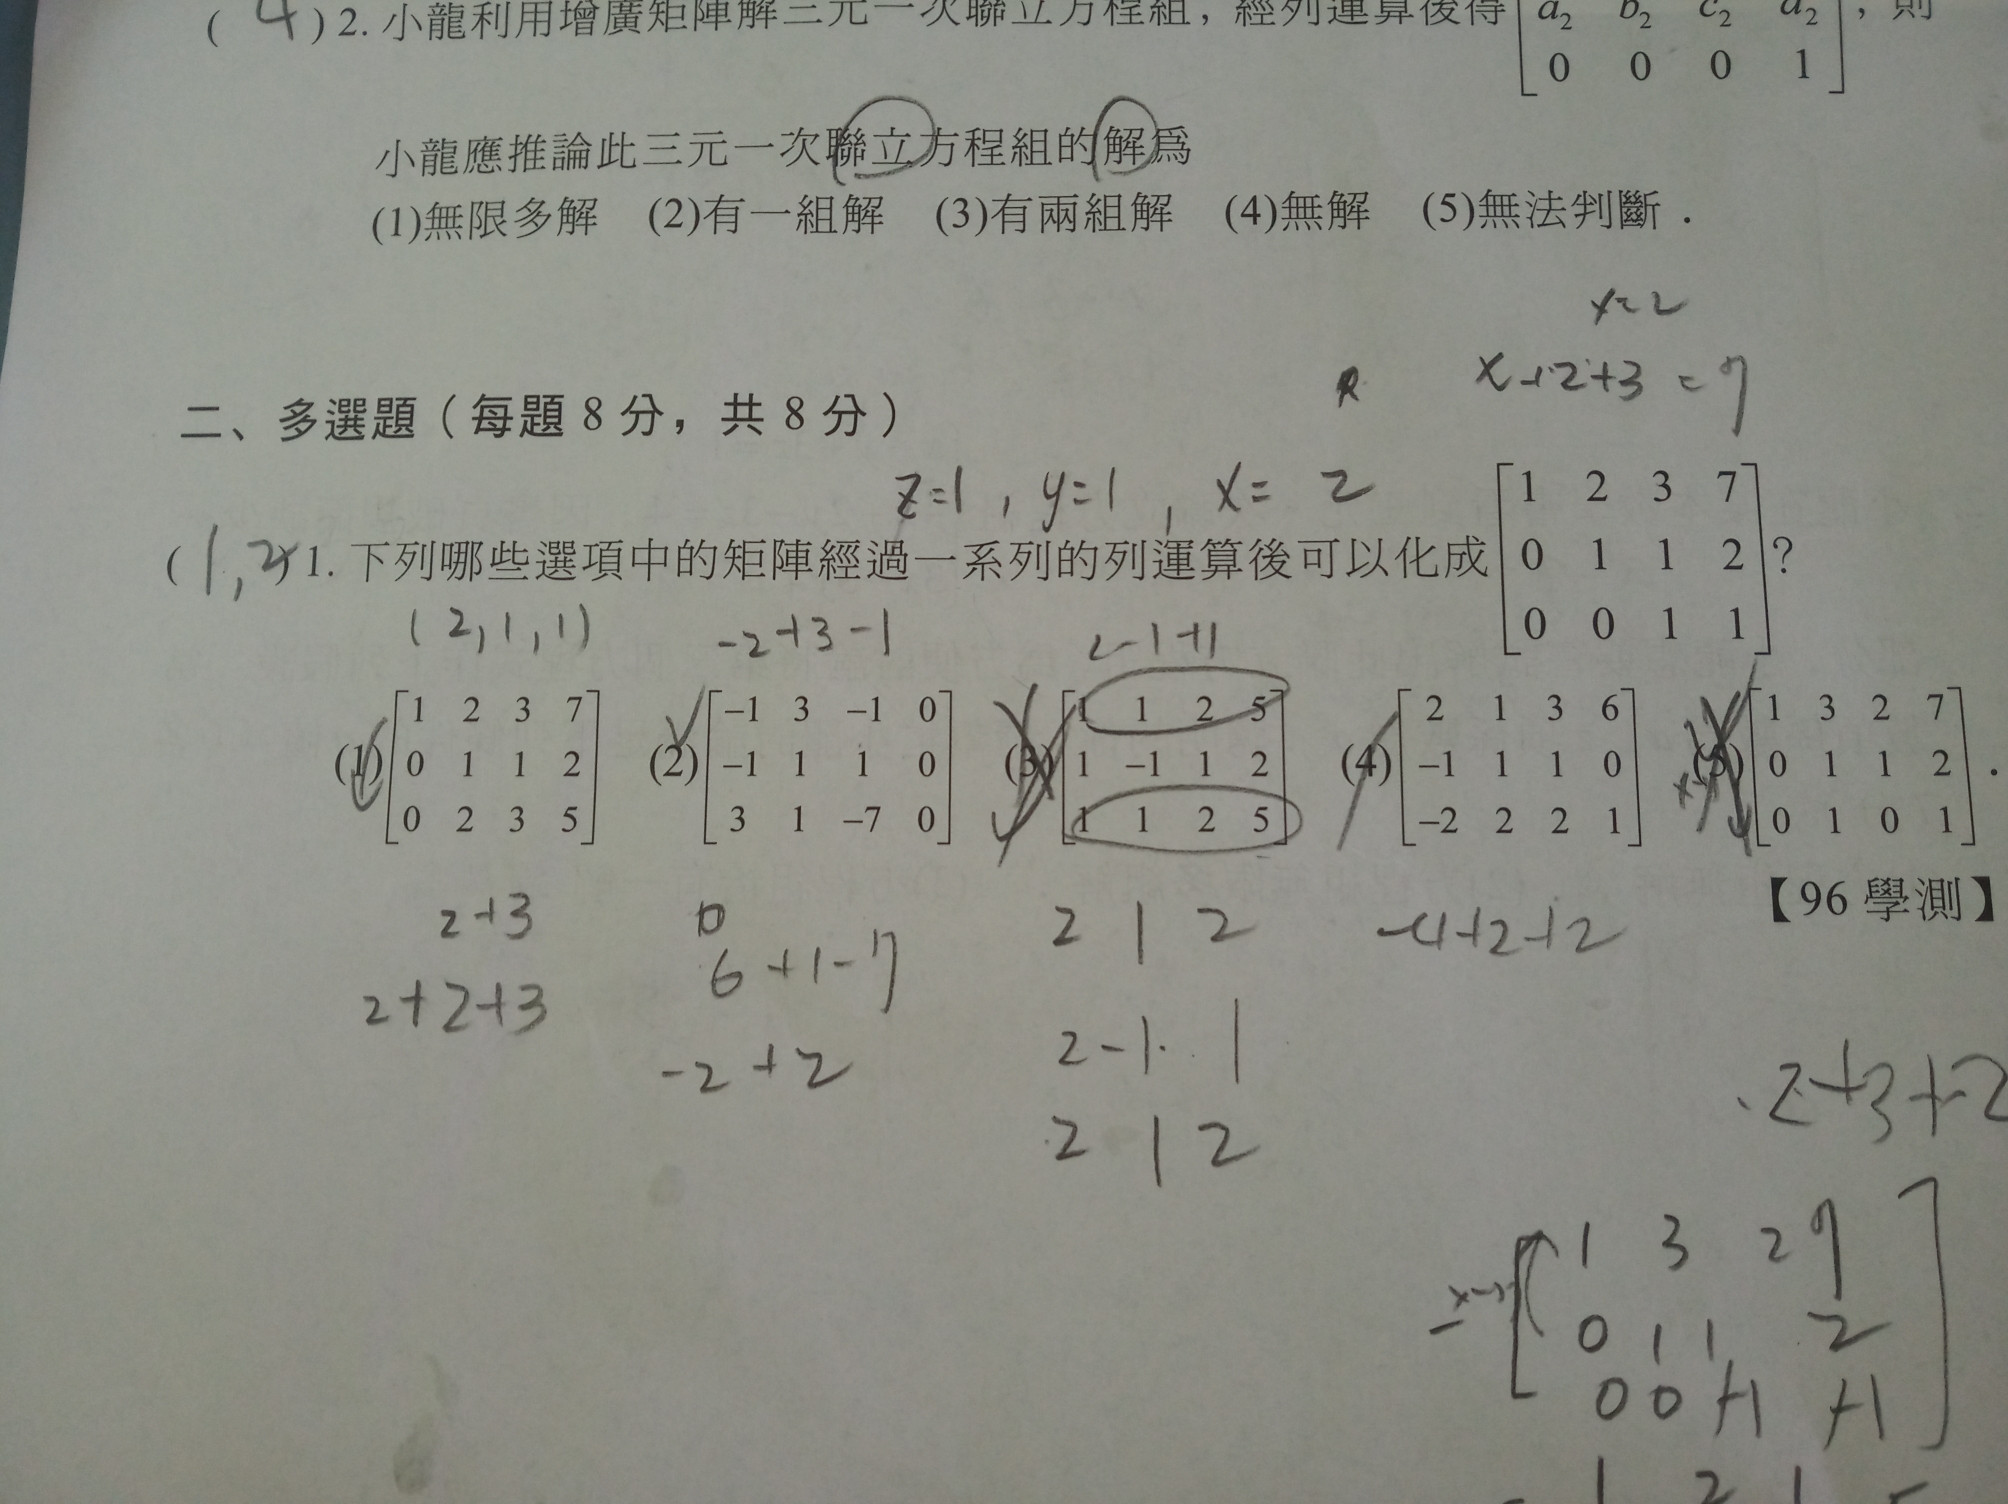 ( 4 ) 2. 小龍利用增廣矩陣解三元一次聯立方程組，經列運算後得 [ a₂ b₂ c₂ d₂ ]，則
0 0 0 1
小龍應推論此三元一次聯立方程組的解為
(1)無限多解 (2)有一組解 (3)有兩組解 (4)無解 (5)無法判斷．
x=2
x+2+3=7
二、多選題（每題 8 分，共 8 分）
z=1 , y=1 , x= 2
1 2 3 7
( 1,2 ) 1. 下列哪些選項中的矩陣經過一系列的列運算後可以化成 0 1 1 2 ?
0 0 1 1
(2,1,1) -2+3-1 2-1+1
1 2 3 7 −1 3 −1 0 1 1 2 5 2 1 3 6 1 3 2 7
(1) 0 1 1 2 (2) −1 1 1 0 (3) 1 −1 1 2 (4) −1 1 1 0 (5) 0 1 1 2 .
0 2 3 5 3 1 −7 0 1 1 2 5 −2 2 2 1 0 1 0 1
【96 學測】
2+3 6+1-7 2 1 2 -4+2+2
2+2+3 -2+2 2-1 1
2 1 2 2+3+2
1 3 2 7
0 1 1 2
0 0 +1 +1
1 2 1